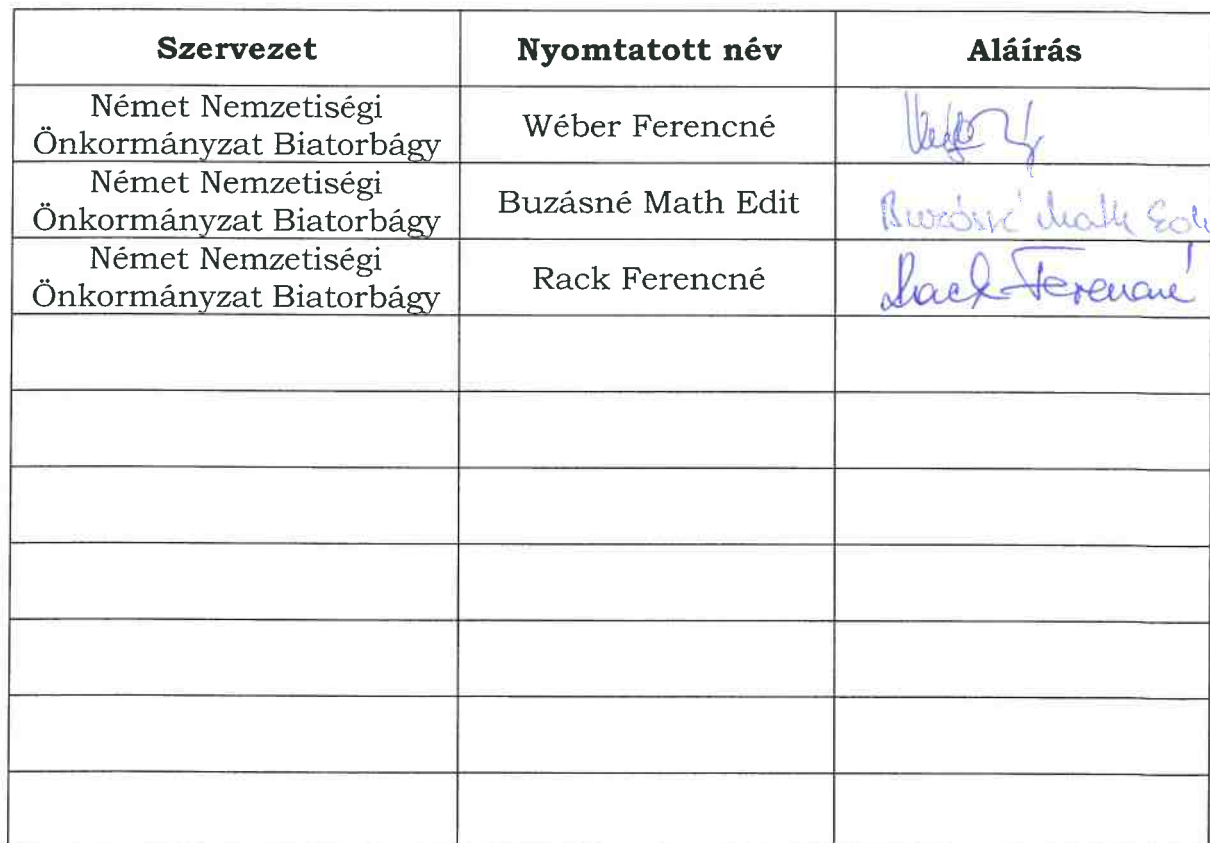 Szervezet Nyomtatott név Aláírás
Német Nemzetiségi
Önkormányzat Biatorbágy
Wéber Ferencné
Német Nemzetiségi
Önkormányzat Biatorbágy
Buzásné Math Edit
Buzásné Math Edit
Német Nemzetiségi
Önkormányzat Biatorbágy
Rack Ferencné
Rack Ferencné